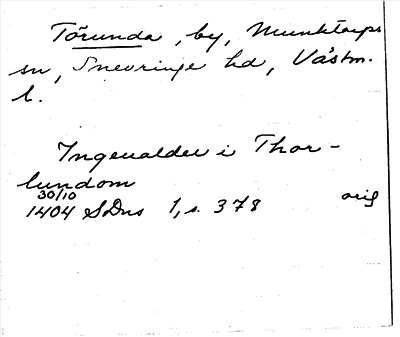 Törunda, by, Munktorps
sn, Snevringe hd, Västm.
l.
Ingeualder i Thor-
lundom
30/10
1404 SDns 1, s. 378 orig